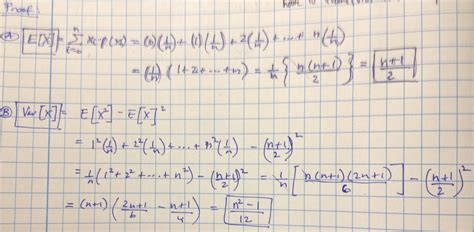 Proof:
Ⓐ E[X] = Σ_{i=0}^{n} x_i·p(x_i) = (0)(1/n) + (1)(1/n) + 2(1/n) + ... + n(1/n)
= (1/n)(1+2+...+n) = 1/n { n(n+1)/2 } = n+1/2
Ⓑ Var[X] = E[X²] - E[X]²
= 1²(1/n) + 2²(1/n) + ... + n²(1/n) - (n+1/2)²
= 1/n (1²+2²+...+n²) - (n+1/2)² = 1/n [ n(n+1)(2n+1)/6 ] - (n+1/2)²
= (n+1) ( 2n+1/6 - n+1/4 ) = n²-1/12